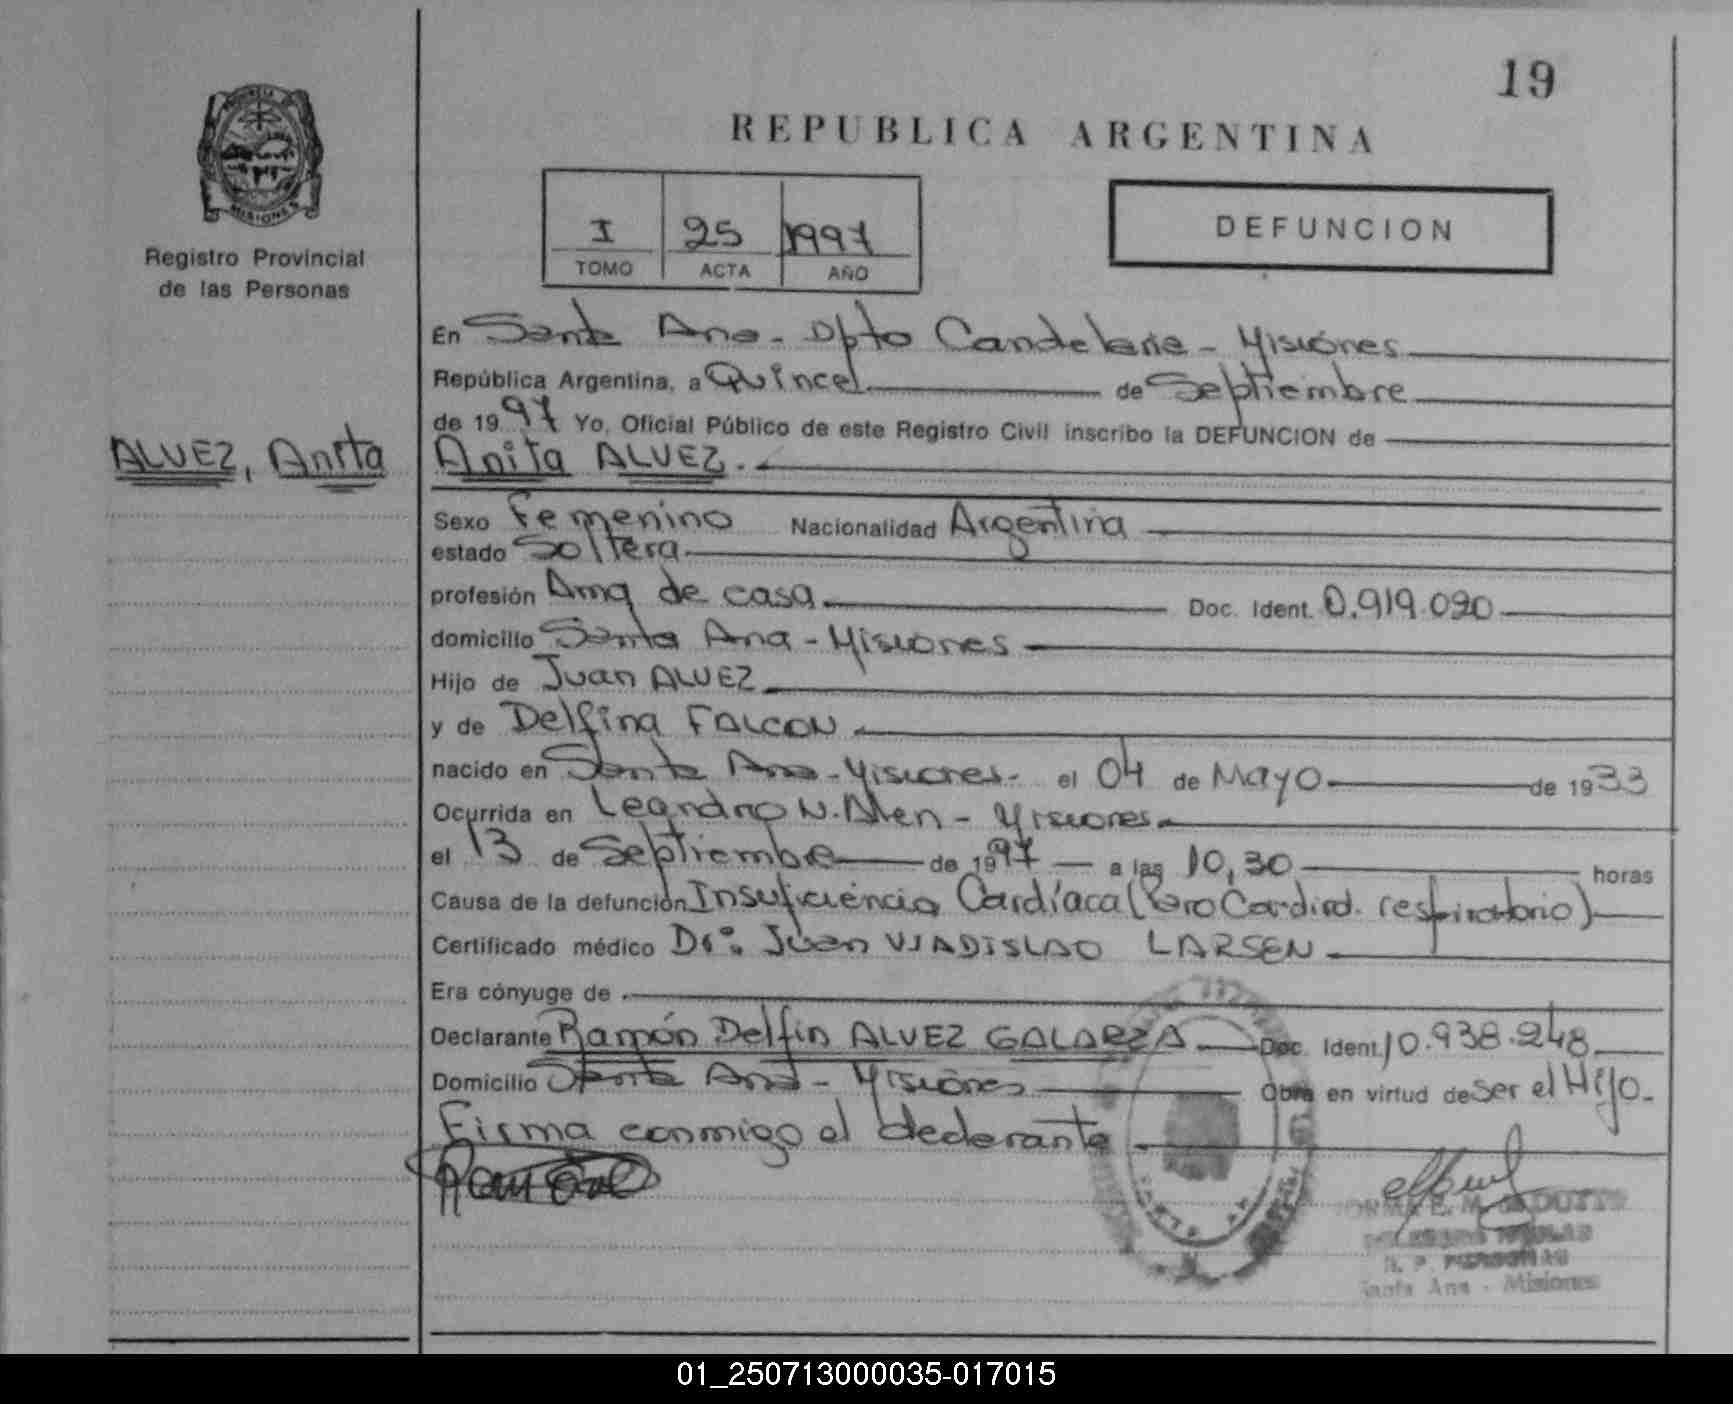 19
REPUBLICA ARGENTINA
PROVINCIA DE
MISIONES
Registro Provincial
de las Personas
I 25 1997
TOMO ACTA AÑO
DEFUNCION
En Santa Ana - Dpto Candelaria - Misiones
República Argentina, a Quince de Septiembre
de 1997 Yo, Oficial Público de este Registro Civil inscribo la DEFUNCION de
ALVEZ, Anita
Anita ALVEZ.
Sexo Femenino Nacionalidad Argentina
estado Soltera
profesión Ama de casa Doc. Ident. 0.919.090
domicilio Santa Ana - Misiones
Hijo de Juan ALVEZ
y de Delfina FALCON
nacido en Santa Ana - Misiones - el 04 de Mayo de 1933
Ocurrida en Leandro N. Alen - Misiones
el 13 de Septiembre de 1997 a las 10,30 horas
Causa de la defunción Insuficiencia Cardíaca (Paro Cardio. respiratorio)
Certificado médico Dr: Juan VLADISLAO LARSEN
Era cónyuge de
Declarante Ramón Delfin ALVEZ GALARZA Doc. Ident. 10.938.248
Domicilio Santa Ana - Misiones Obra en virtud de Ser el Hijo.
Firma conmigo el declarante
R. P. PERSONAS
Santa Ana - Misiones
01_250713000035-017015